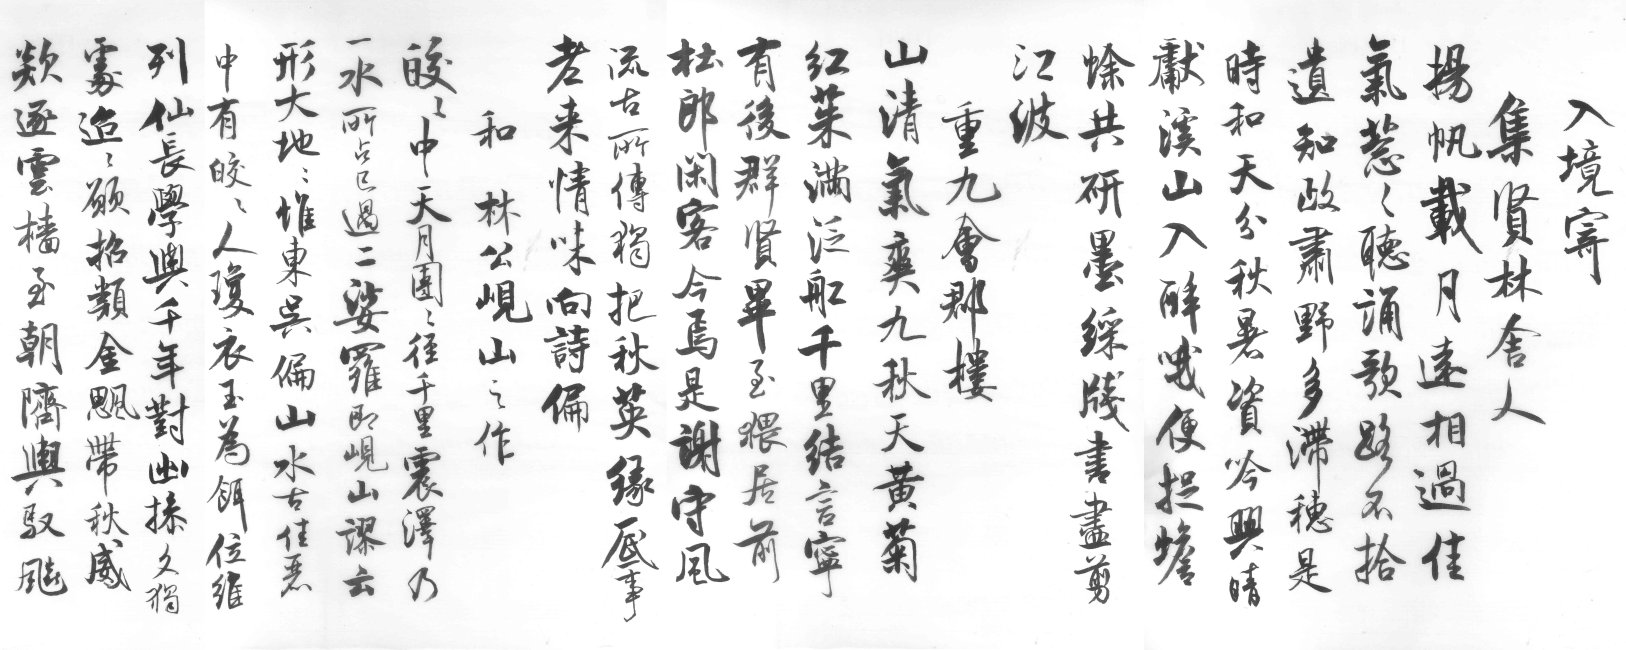 入境寄
集賢林舍人
揚帆載月遠相過佳
氣蔥〻聽誦歌路不拾
遺知政肅野多滯穗是
時和天分秋暑資吟興晴
獻溪山入醉哦便捉蟾
蜍共研墨綵牋書盡剪
江波
重九會郡樓
山清氣爽九秋天黃菊
紅茱滿泛船千里結言寧
有後群賢畢至猥居前
杜郎閑客今焉是謝守風
流古所傳獨把秋英緣底事
老來情味向詩偏
和林公峴山之作
皎〻中天月團〻徑千里震澤乃
一水所占已過二娑羅即峴山謬云
形大地〻惟東吳偏山水古佳麗
中有皎〻人瓊衣玉為餌位維
列仙長學與千年對幽操久獨
處迢〻願招類金颸帶秋威
欻逐雲檣至朝隮輿馭飈